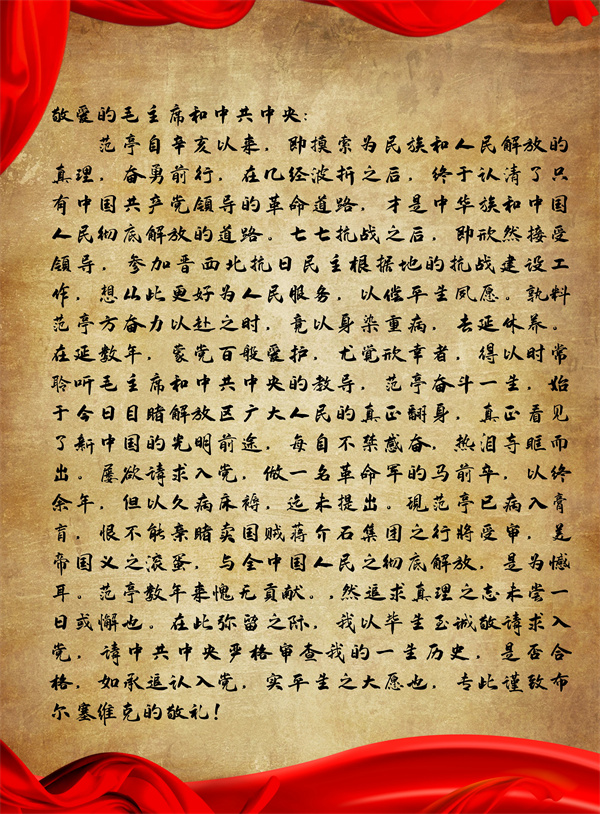 敬爱的毛主席和中共中央:
范亭自辛亥以来，即摸索为民族和人民解放的
真理，奋勇前行，在几经波折之后，终于认清了只
有中国共产党领导的革命道路，才是中华族和中国
人民彻底解放的道路。七七抗战之后，即欣然接受
领导，参加晋西北抗日民主根据地的抗战建设工
作，想从此更好为人民服务，以偿平生夙愿。孰料
范亭方奋力以赴之时，竟以身染重病，去延休养。
在延数年，蒙党百般爱护，尤觉欣幸者，得以时常
聆听毛主席和中共中央的教导，范亭奋斗一生，始
于今日目睹解放区广大人民的真正翻身，真正看见
了新中国的光明前途，每自不禁感奋，热泪夺眶而
出。屡欲请求入党，做一名革命军的马前卒，以终
余年，但以久病床褥，迄未提出。现范亭已病入膏
肓，恨不能亲睹卖国贼蒋介石集团之行将受审，美
帝国义之滚蛋，与全中国人民之彻底解放，是为憾
耳。范亭数年来愧无贡献。，然追求真理之志未尝一
日或懈也。在此弥留之际，我以毕生至诚敬请求入
党，请中共中央严格审查我的一生历史，是否合
格，如承追认入党，实平生之大愿也，专此谨致布
尔塞维克的敬礼！